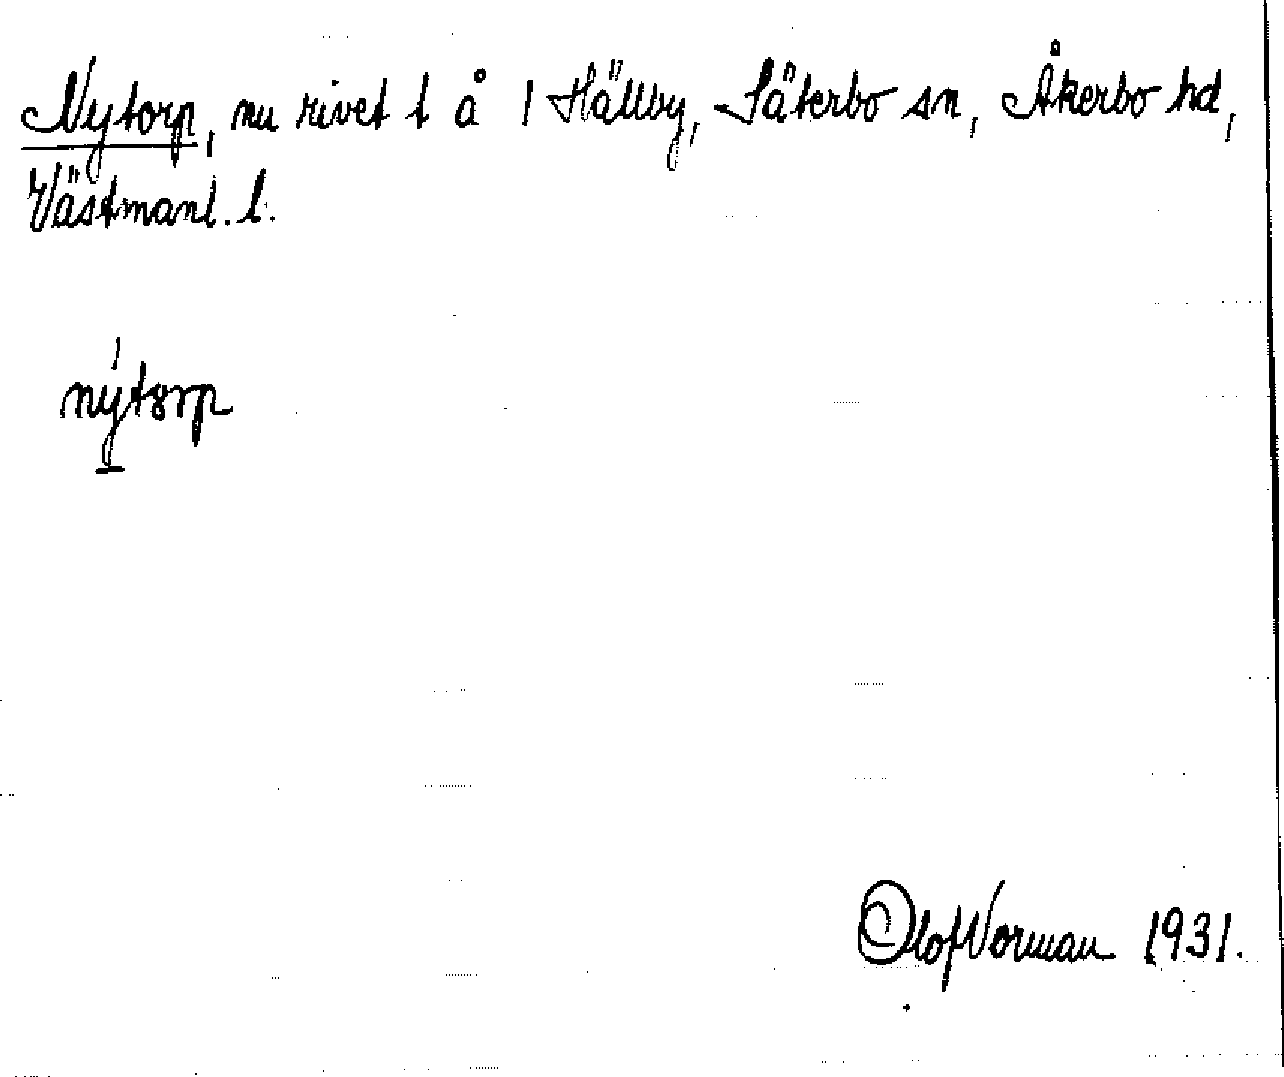 Nytorp, nu rivet t å 1 Hällby, Säterbo sn, Åkerbo hd,
Västmanl. l.
nýtorp
Olof Norman 1931.